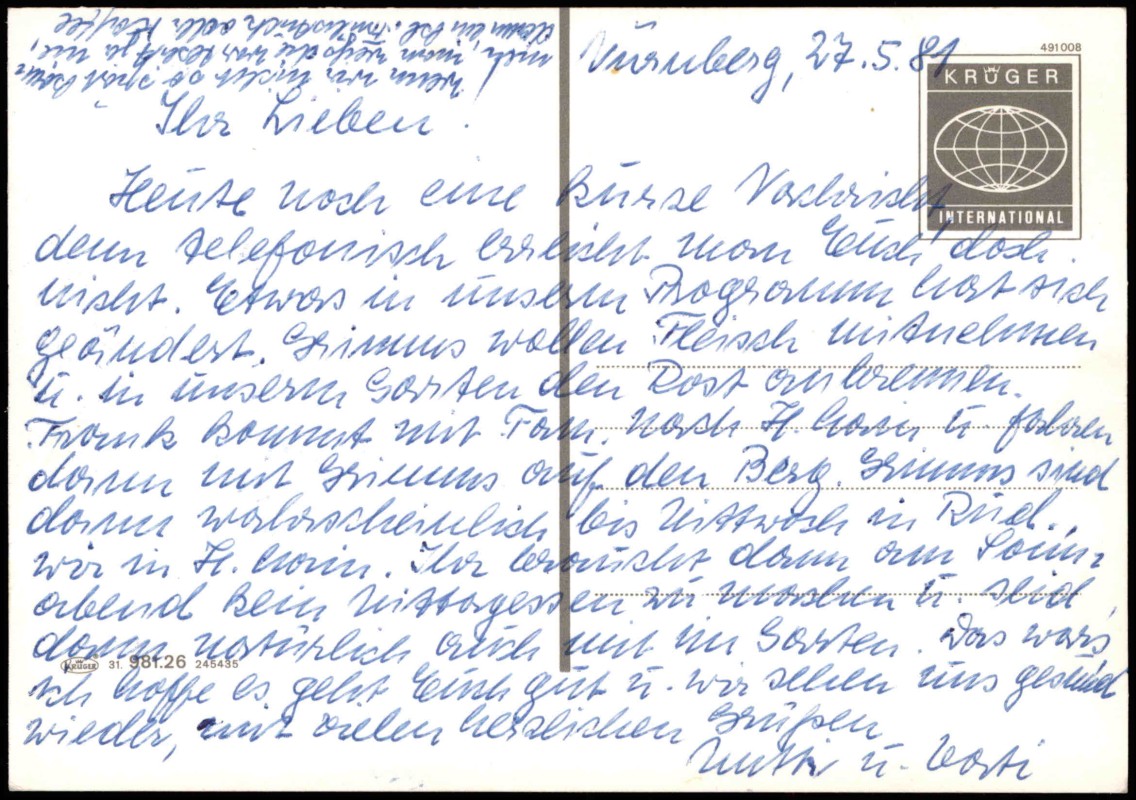 Nürnberg, 27.5.81
491008
KRÜGER
INTERNATIONAL
Ihr Lieben.
Heute noch eine kurze Nachricht
denn telefonisch erreicht man Euch doch
nicht. Etwas in unserem Programm hat sich
geändert. Grimms wollen Fleisch mitnehmen
u. in unserm Garten den Rost anbrennen.
Frank kommt mit Fam. nach H. hain u. fahren
dann mit Grimms auf den Berg. Grimms sind
dann wahrscheinlich bis Mittwoch in Rud.,
wir in H. hain. Ihr braucht dann am Sonn-
abend kein Mittagessen zu machen u. seid
dann natürlich auch mit im Garten. Das wars
ich hoffe es geht Euch gut u. wir sehen uns gesund
wieder, mit vielen herzlichen Grüßen
Mutti u. Vati
wenn wir nicht so
nich, man weiß das vor ja nie,
dann ein kl. Frühstück oder Kaffee
KRÜGER 31. 981.26 245435